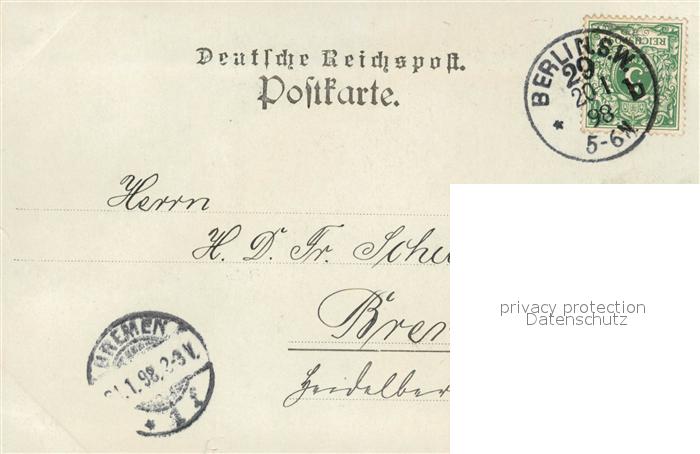 Deutsche Reichspost.
Postkarte.
REICHSPOST
5
BERLIN.S.W.
29 b
20 1
98
5-6N.
Herrn
H. D. Fr. Sch
Bre
Heidelber
BREMEN
1.98.2-3V.
* 1 f
privacy protection
Datenschutz